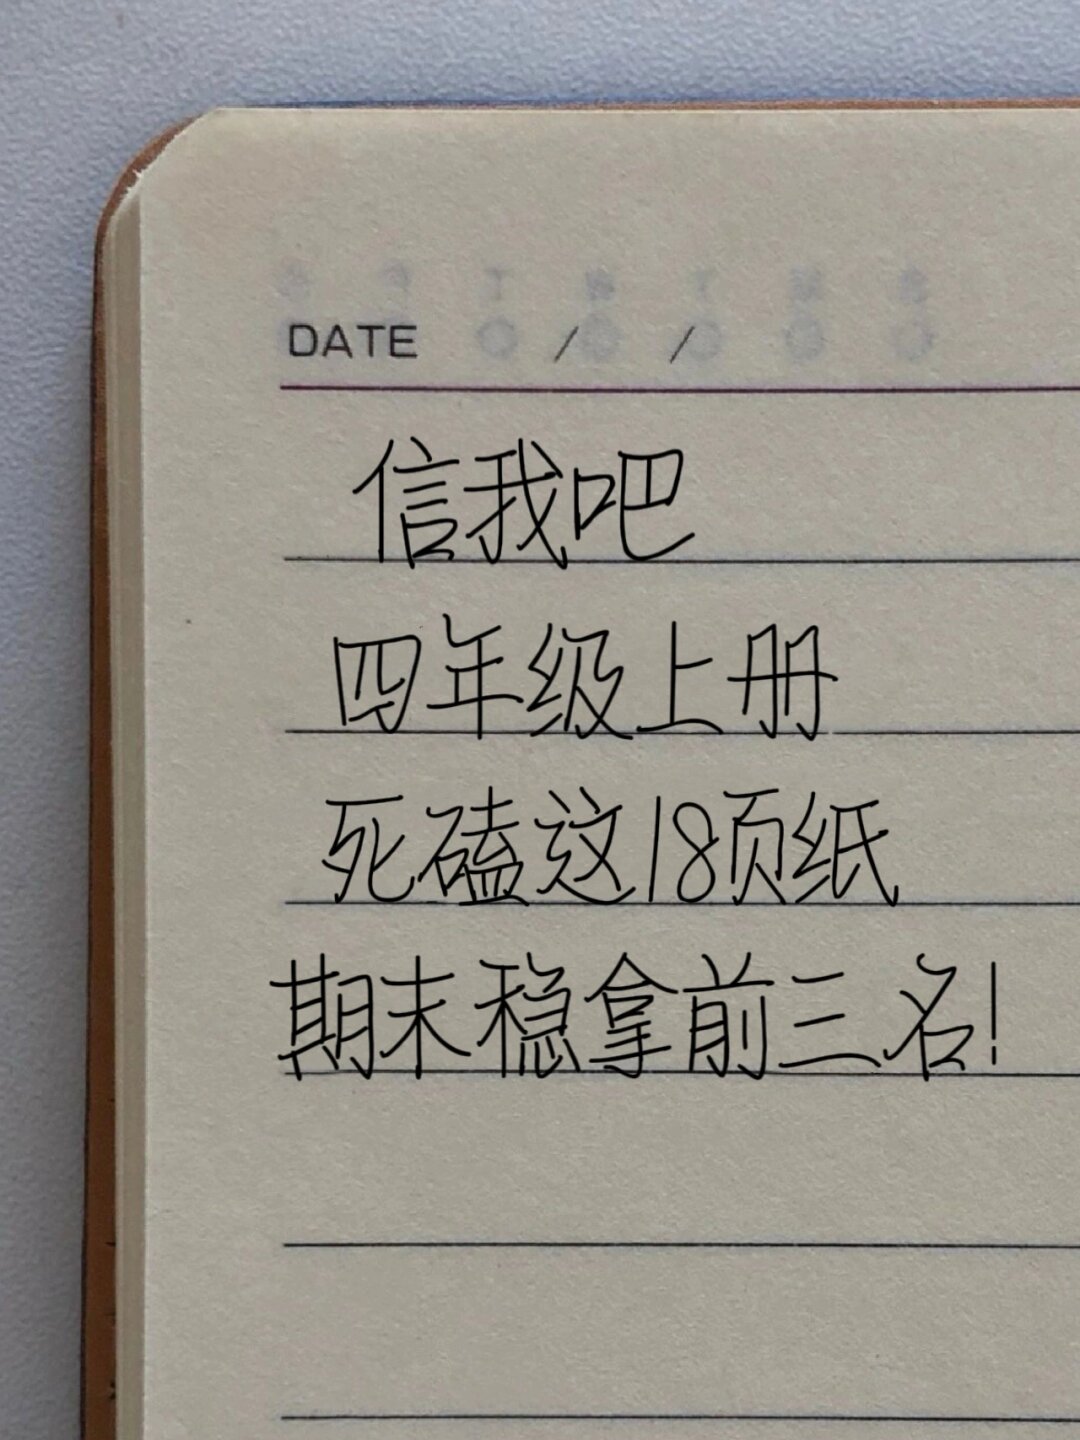 DATE / /
信我吧
四年级上册
死磕这18页纸
期末稳拿前三名!